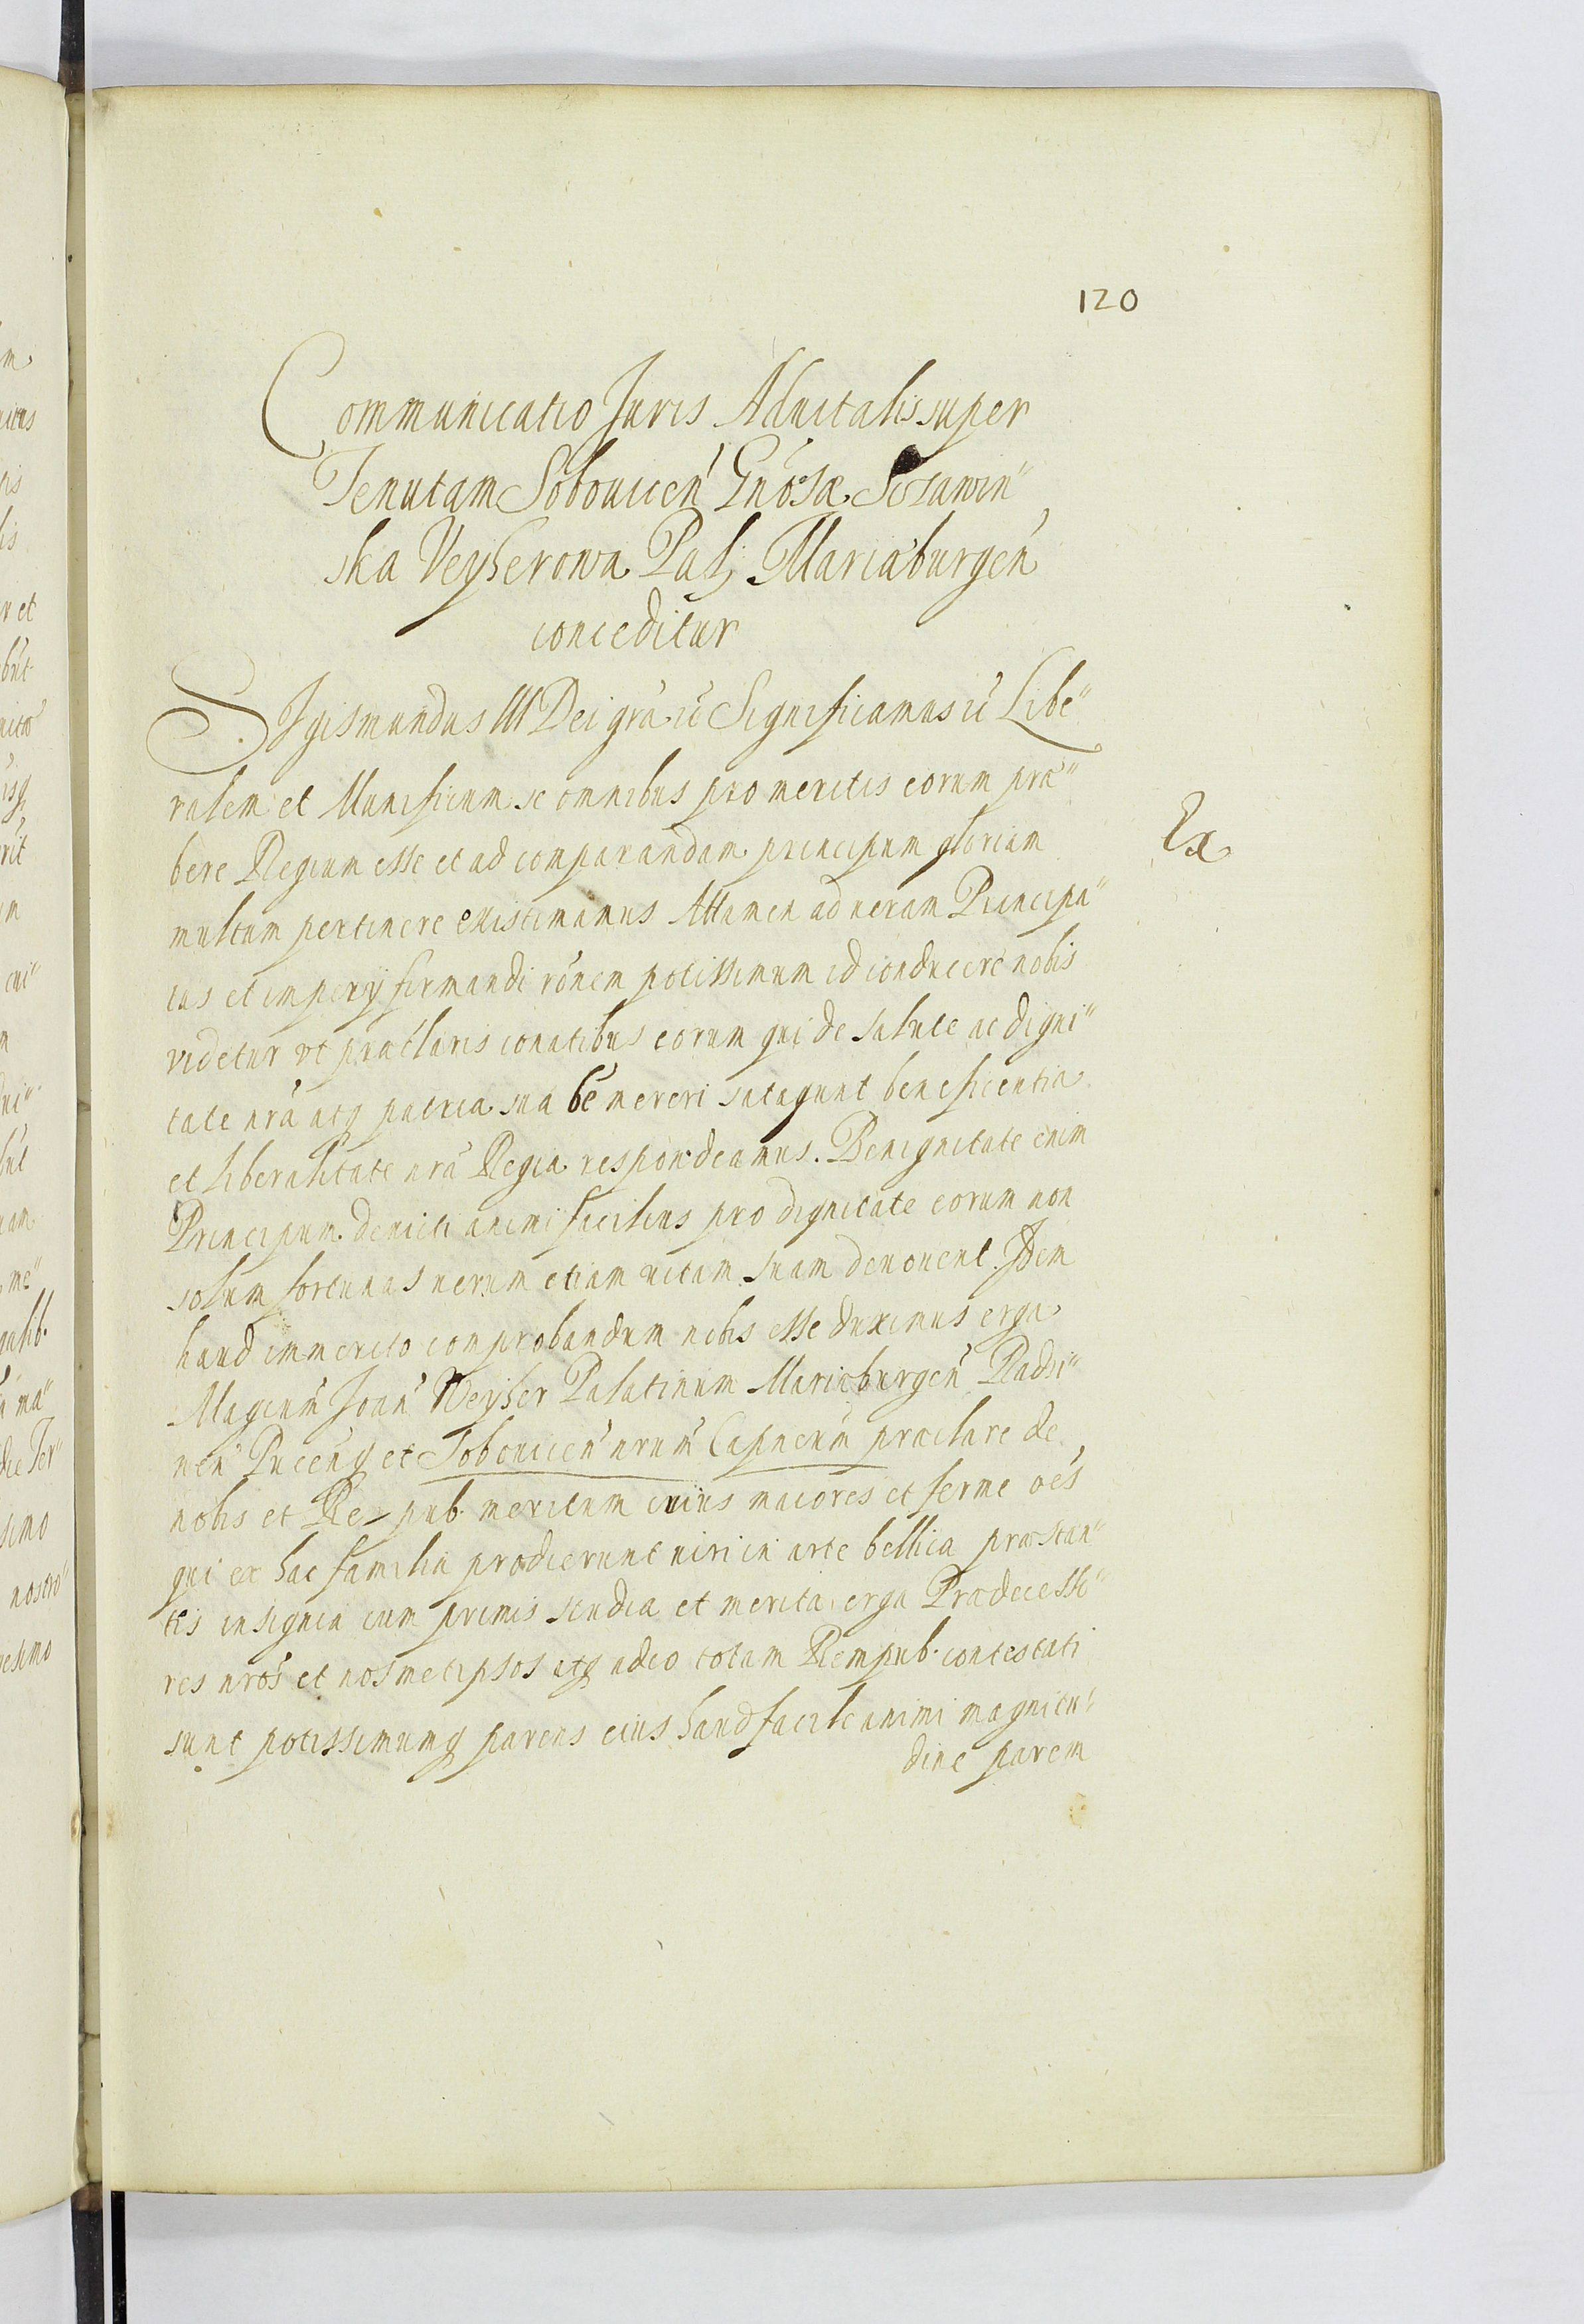 120
Communicatio Juris Aduitalis super
Tenutam Sobouicen̄ Gn̄osæ Sczawin"
ska Veyherowa Pal: Mariæburgen̄
conceditur
SIgismundus III Dei grā ic̄ Significamus ic̄ Libe"
ralem et Munificum se omnibus pro meritis eorum præ"
bere Regium esse et ad comparandam principum gloriam
Ex
multum pertinere existimamus Attamen ad ueram Principa"
tus et impery firmandi rōnem potissimum id conducere nobis
videtur vt præclaris conatibus eorum qui de salute ac digni"
tate nrā atq patria sua bē mereri satagunt beneficentia
et liberalitate nrā Regia respondeamus. Benignitate enim
Principum deuicti animi facilius pro dignitate eorum non
solum fortunas uerum etiam uitam suam deuouent. Idem
haud immerito comprobandum nobis esse duximus erga
Magcum̄ Joan̄ Veyher Palatinum Mariæburgen̄ Radzi"
nen̄ Pucen̄q et Sobouicen̄ nrum̄ Capneum̄ præclare de
nobis et Re-pub. meritum cuius maiores et ferme oēs
qui ex hac familia prodierunt uiri in arte bellica præstan"
tes insignia cum primis studia et merita erga Prædecesso"
res nrōs et nosmetipsos atq adeo totam Rempub. contestati
sunt potissimumq parens eius haud facile animi magnitu"
dine parem